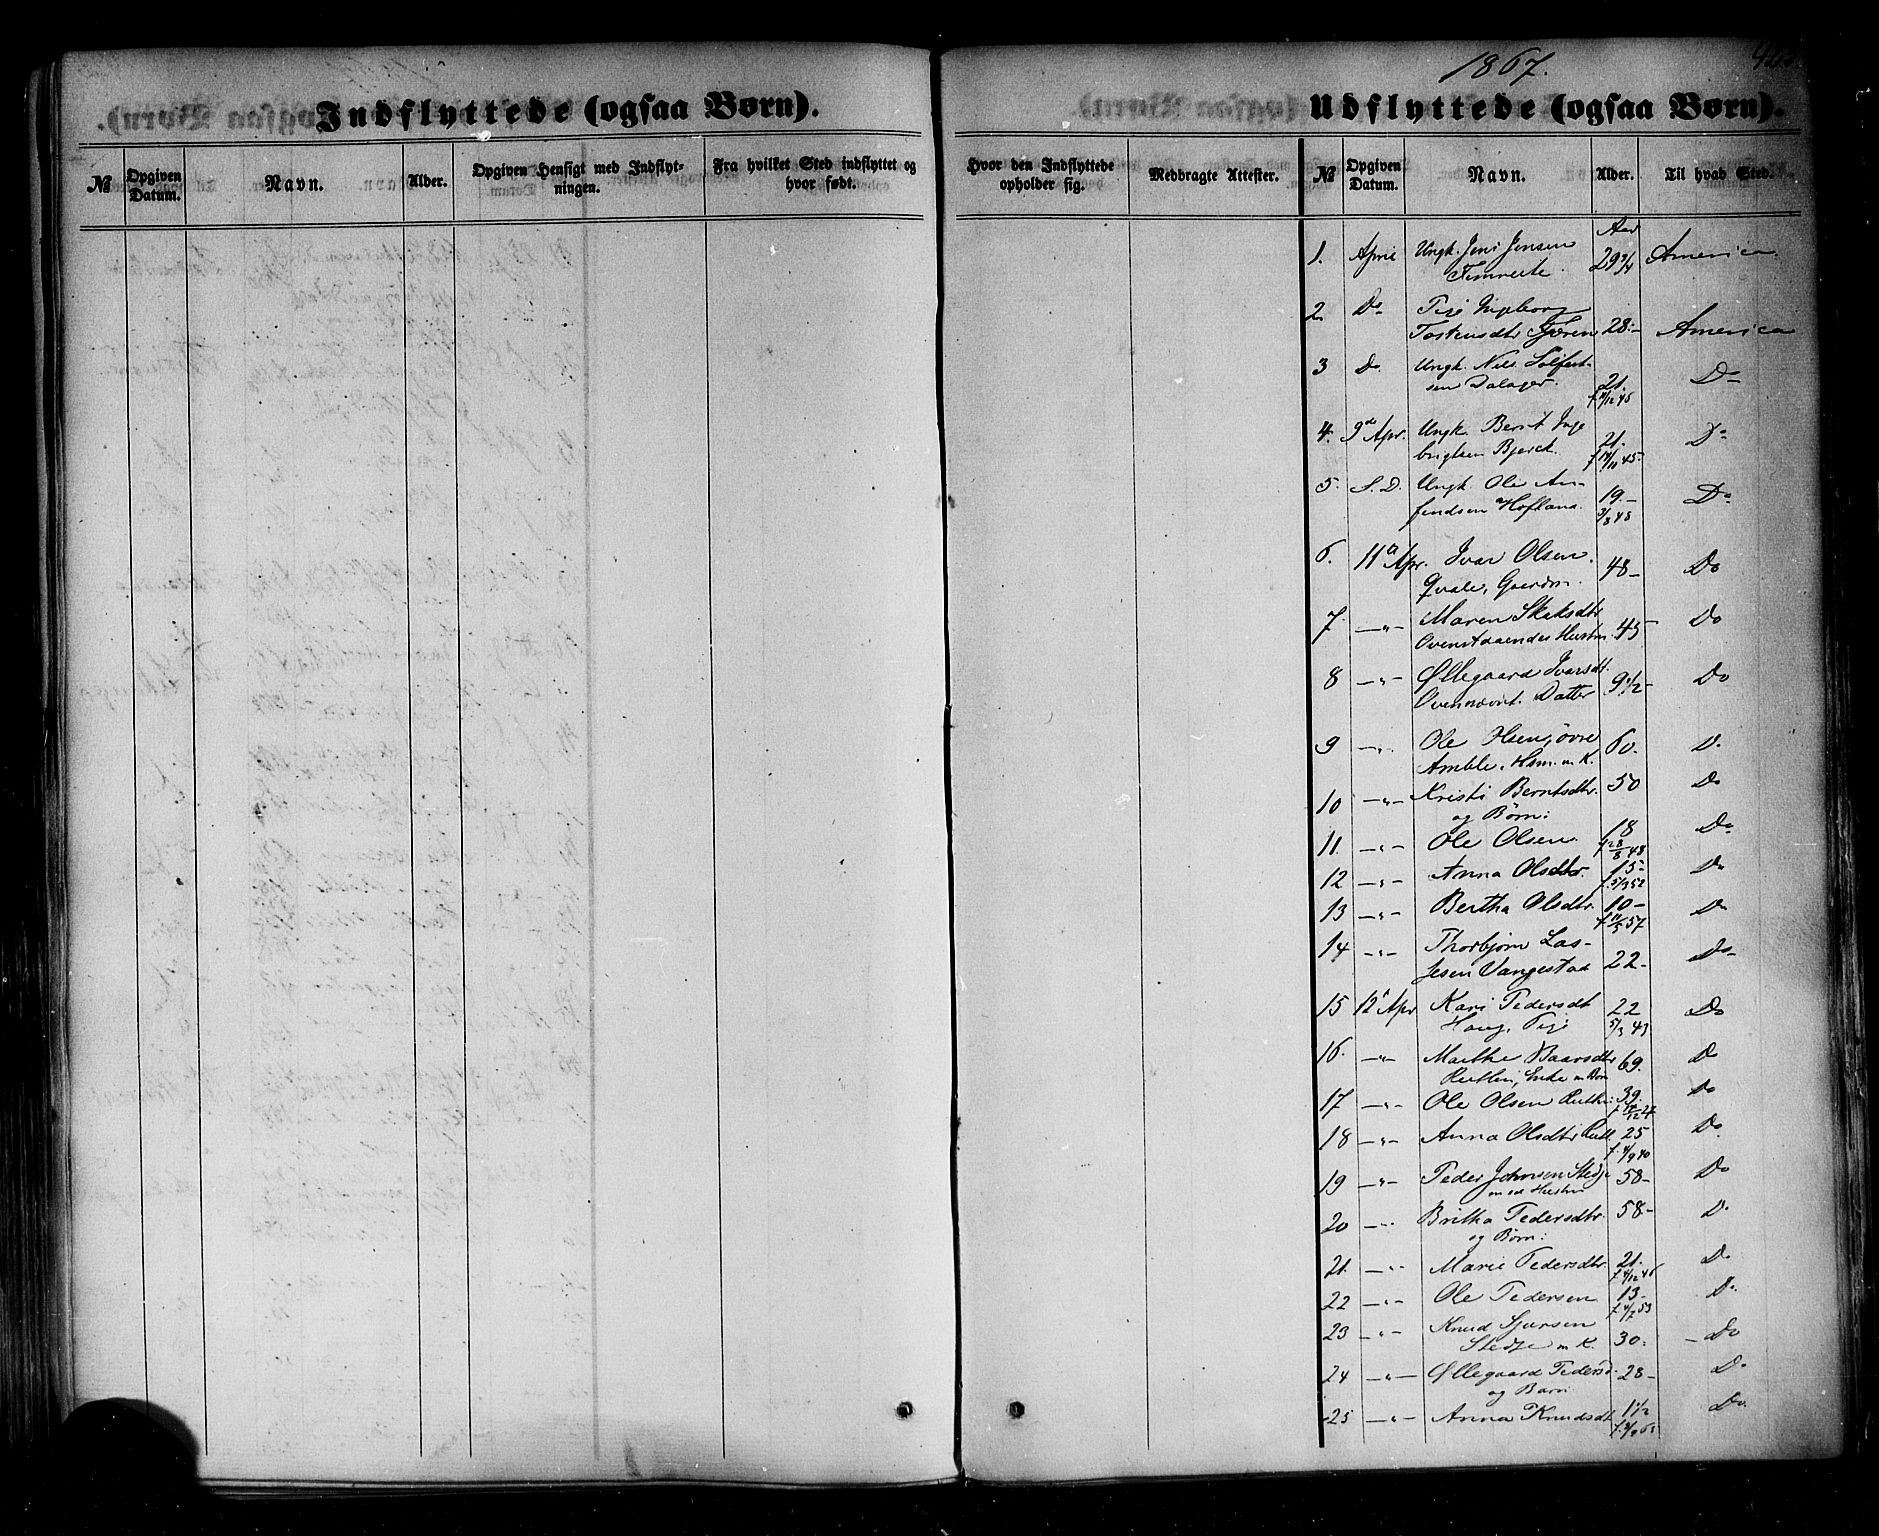 1867.
Indflyttede (ogsaa Børn).
Udflyttede (ogsaa Børn).
№ Opgiven Datum. Navn. Alder. Opgiven Hensigt med Indflytningen. Fra hvilket Sted indflyttet og hvor født. Hvor den Indflyttede opholder sig. Medbragte Attester. № Opgiven Datum. Navn. Alder. Til hvad Sted.
Aar
1. April Ungk. Jens Jensen 29 3/4 America
2 Do Pige Ingeborg
Tostensdtr 28.- America
3 Do. Ungk. Nils
sen Dalager. 21. Do
f. 11/12 45
4. 9de Apr. Ungk. Bernt Inge
brigtsen 21. Do
f 14/11 45
5. S. D. Ungk. Ole An-
fendsen Hofland. 19.- Do
3/8 48
6. 11te Apr. Ivar Olsen 48- Do
Qvale, Gaardm.
7. -„- Maren
Ovenstaaendes Hustru 45- Do
8 -„- Øllegaard Ivarsdt. 9 1/2- Do
Ovennævnt. Datter
9 -„- Ole Olsen, øvre 60. D.
Amble, Hsm. m. K.
10 -„- Kristi Berntsdtr. 50 Do
og Børn:
11. -„- Ole Olsen 18 Do
f 28/8 48
12 -„- Anna Olsdtr. 15- Do
f. 5/3 52
13 -„- Bertha Olsdtr. 10- Do
f 11/5 57
14 -„- Thorbjørn Las-
sesen Vangestad 22- Do-
15 12te Apr Kari Pedersdt 22 Do
Haug, Pige 5/3 43
16. -„- Marthe Baarsdtr 69. Do
Enke m Børn
17 -„- Ole Olsen 39. Do
18 -„- Anna Olsdtr 25 Do
f. 4/9 40
19 -„- Peder Johnsen Stedje 58- Do
med Hustru
20 -„- Britha Pedersdtr. 58- D.
og Børn:
21. -„- Marie Pedersdtr. 21. Do
22 -„- Ole Pedersen 13- Do.
f. 4/7 53
23 -„- Knud Sjursen
Stedje m K. 30. -Do
24 -„- Øllegaard Pedersd. 28- D.
og Barn
25 -„- Anna Knudsdt 1 1/2 Do.